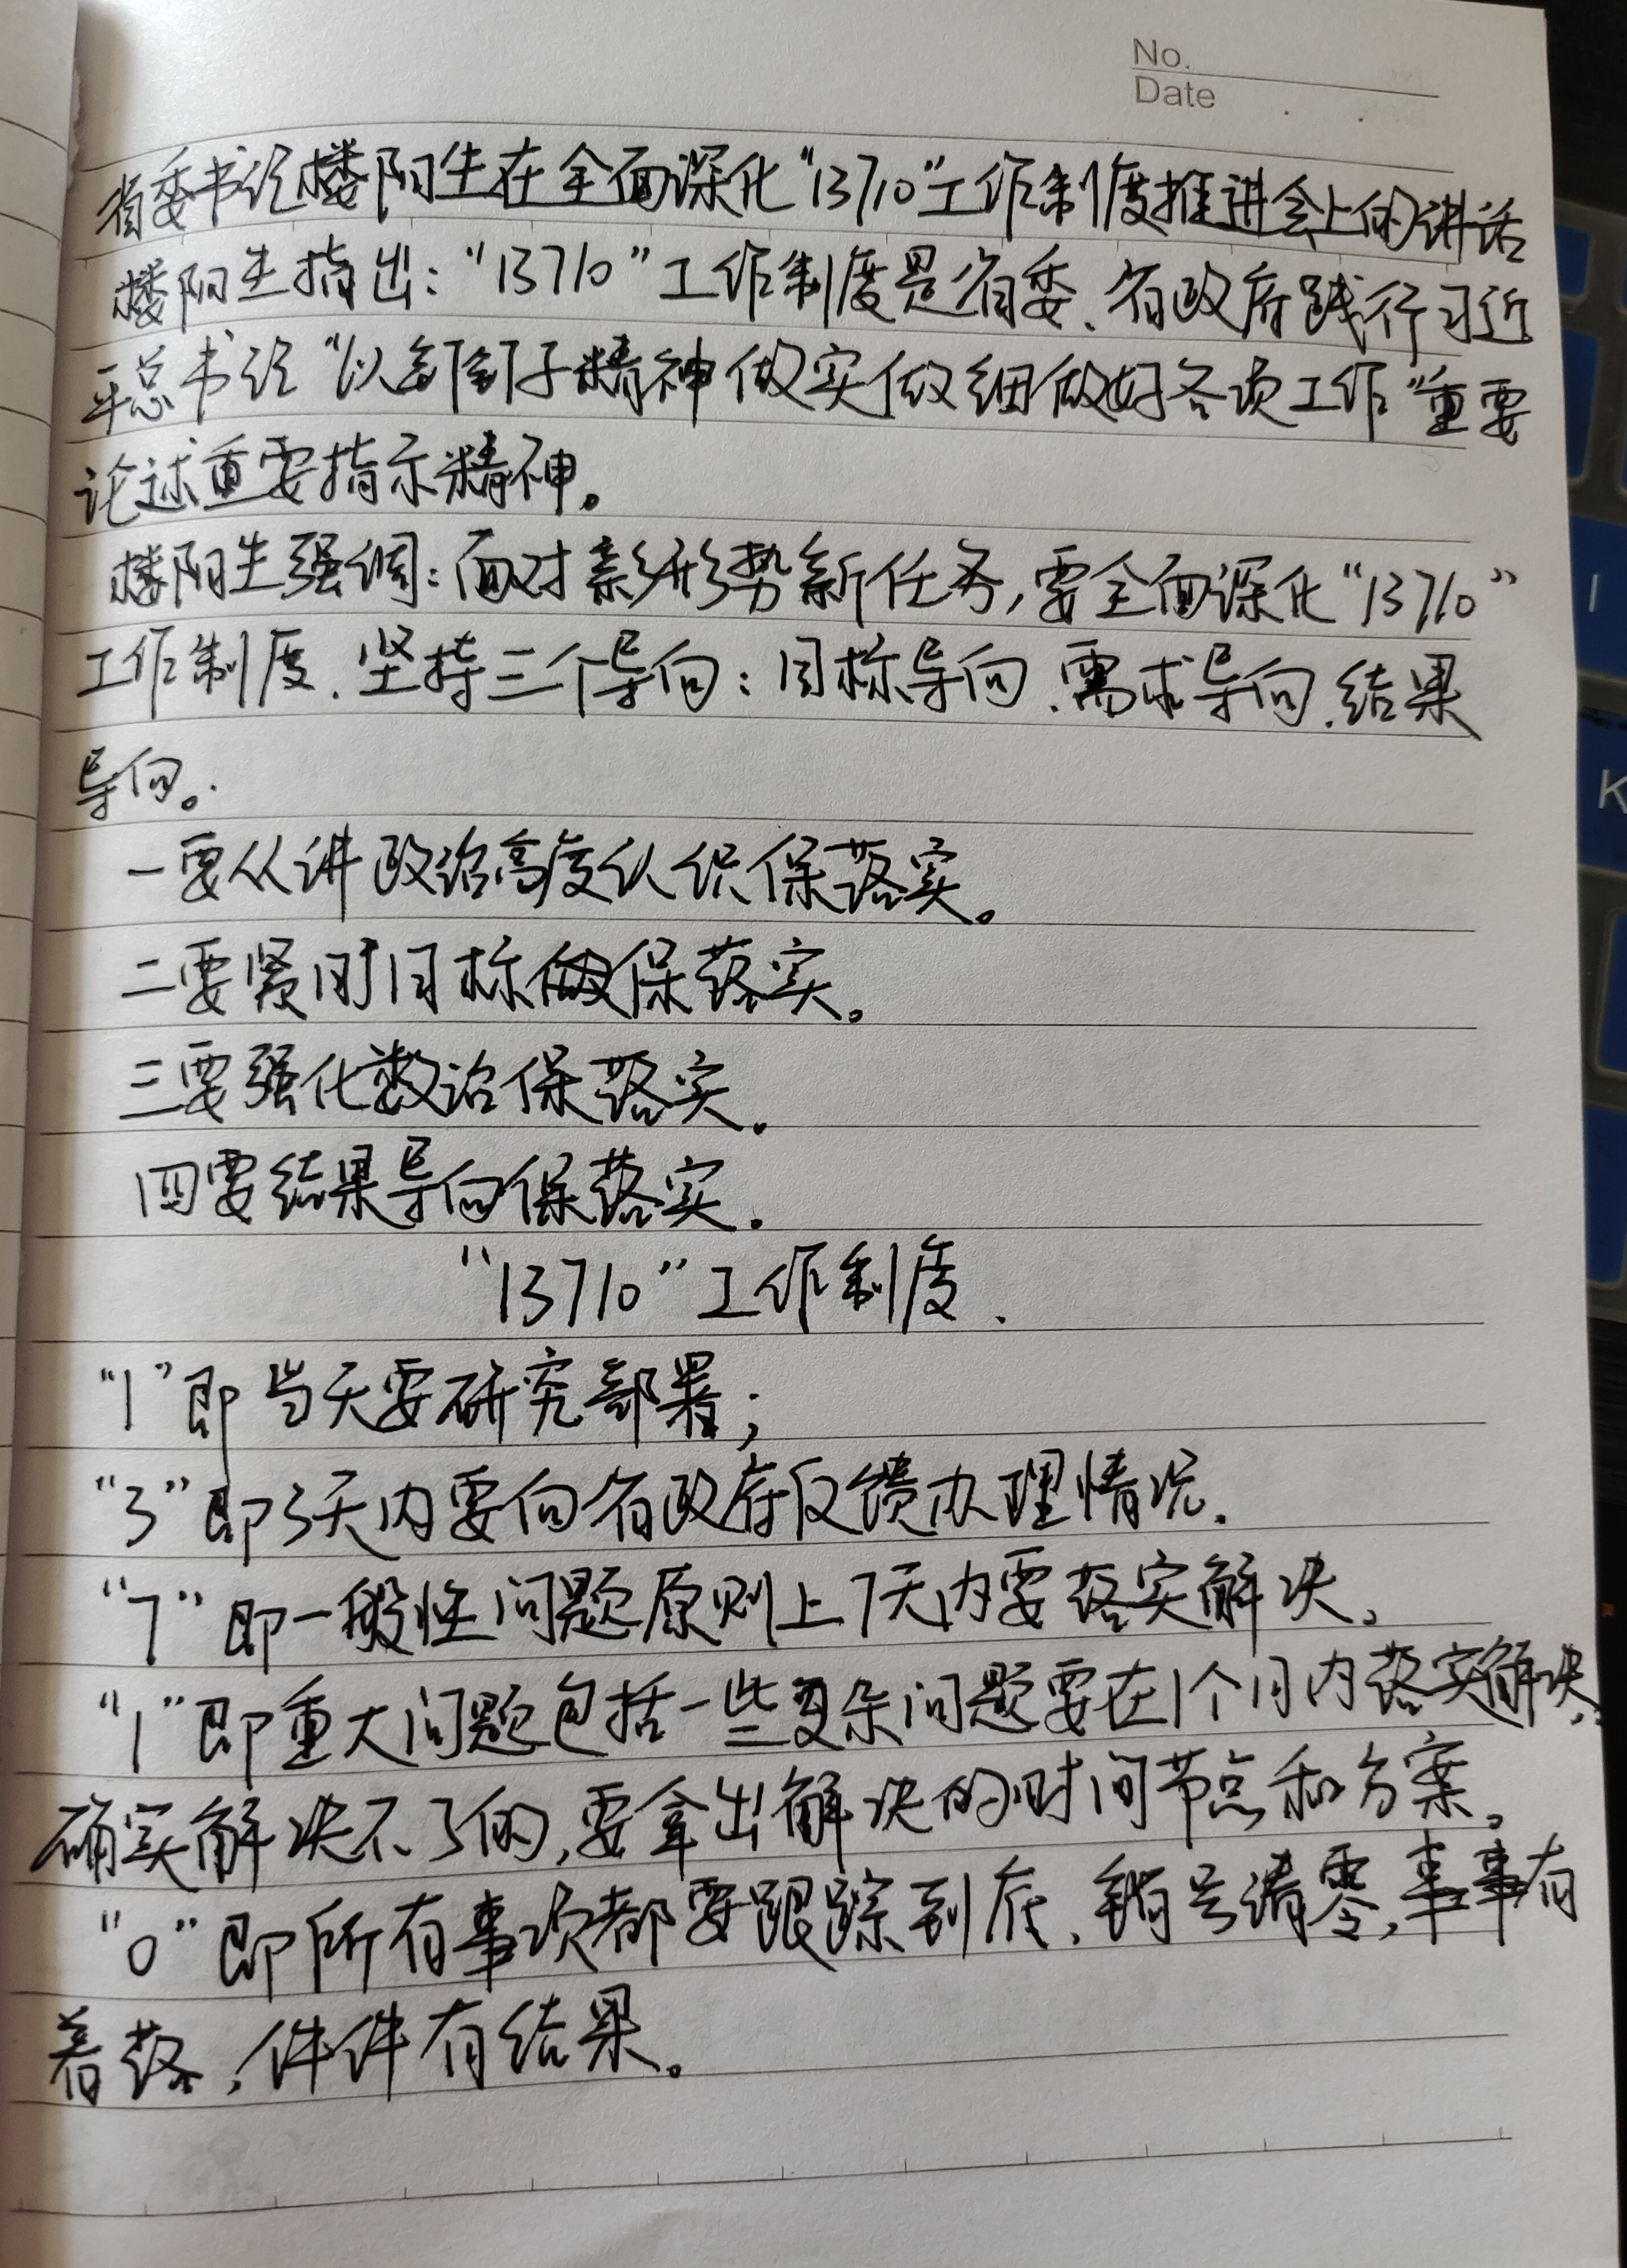 No.
Date
省委书记楼阳生在全面深化“13710”工作制度推进会上的讲话
楼阳生指出：“13710”工作制度是省委、省政府践行习近
平总书记“以钉钉子精神做实做细做好各项工作”重要
论述重要指示精神。
楼阳生强调：面对新形势新任务，要全面深化“13710”
工作制度、坚持三个导向：目标导向、需求导向、结果
导向。
一要从讲政治高度认识保落实。
二要紧盯目标做保落实。
三要强化数治保落实。
四要结果导向保落实.
“13710”工作制度.
“1”即当天要研究部署；
“3”即3天内要向省政府反馈办理情况.
“7”即一般性问题原则上7天内要落实解决。
“1”即重大问题包括一些复杂问题要在1个月内落实解决，
确实解决不了的，要拿出解决的时间节点和方案。
“0”即所有事项都要跟踪到底、销号清零，事事有
着落，件件有结果。
K